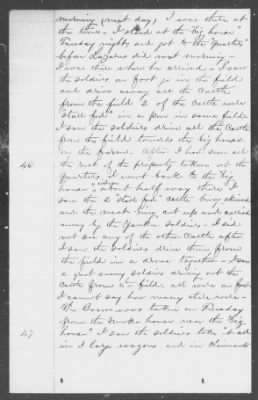 morning (next day) I was there at
the time - I slept at the "big house"
Tuesday night and got to the "Quarters"
before Lazarus did next morning -
I was there when he arrived - I saw
the soldiers on foot go in the field
and drive away all the cattle
from the field 2 of the cattle were
"Stall fed" in a pen in same field
I saw the soldiers drive all the cattle
from the field towards the big house
on the farm. After I had seen all
46 the rest of the property taken at the
Quarters, I went back to the "big
house" when about half way there I
saw the 2 "stall fed" cattle being skinned
and the meat being cut up and carried
away by the Yankee soldiers - I did
not see any of the other cattle after
I saw the soldiers drive them from
the field in a drove together - I saw
a good many soldiers driving out the
cattle from the field, all were on foot
I cannot say how many there were -
The Bacon was taken on Tuesday
from the smoke house near the "big
47 house" I saw the soldiers take it and
in 2 large wagons and in Claimants